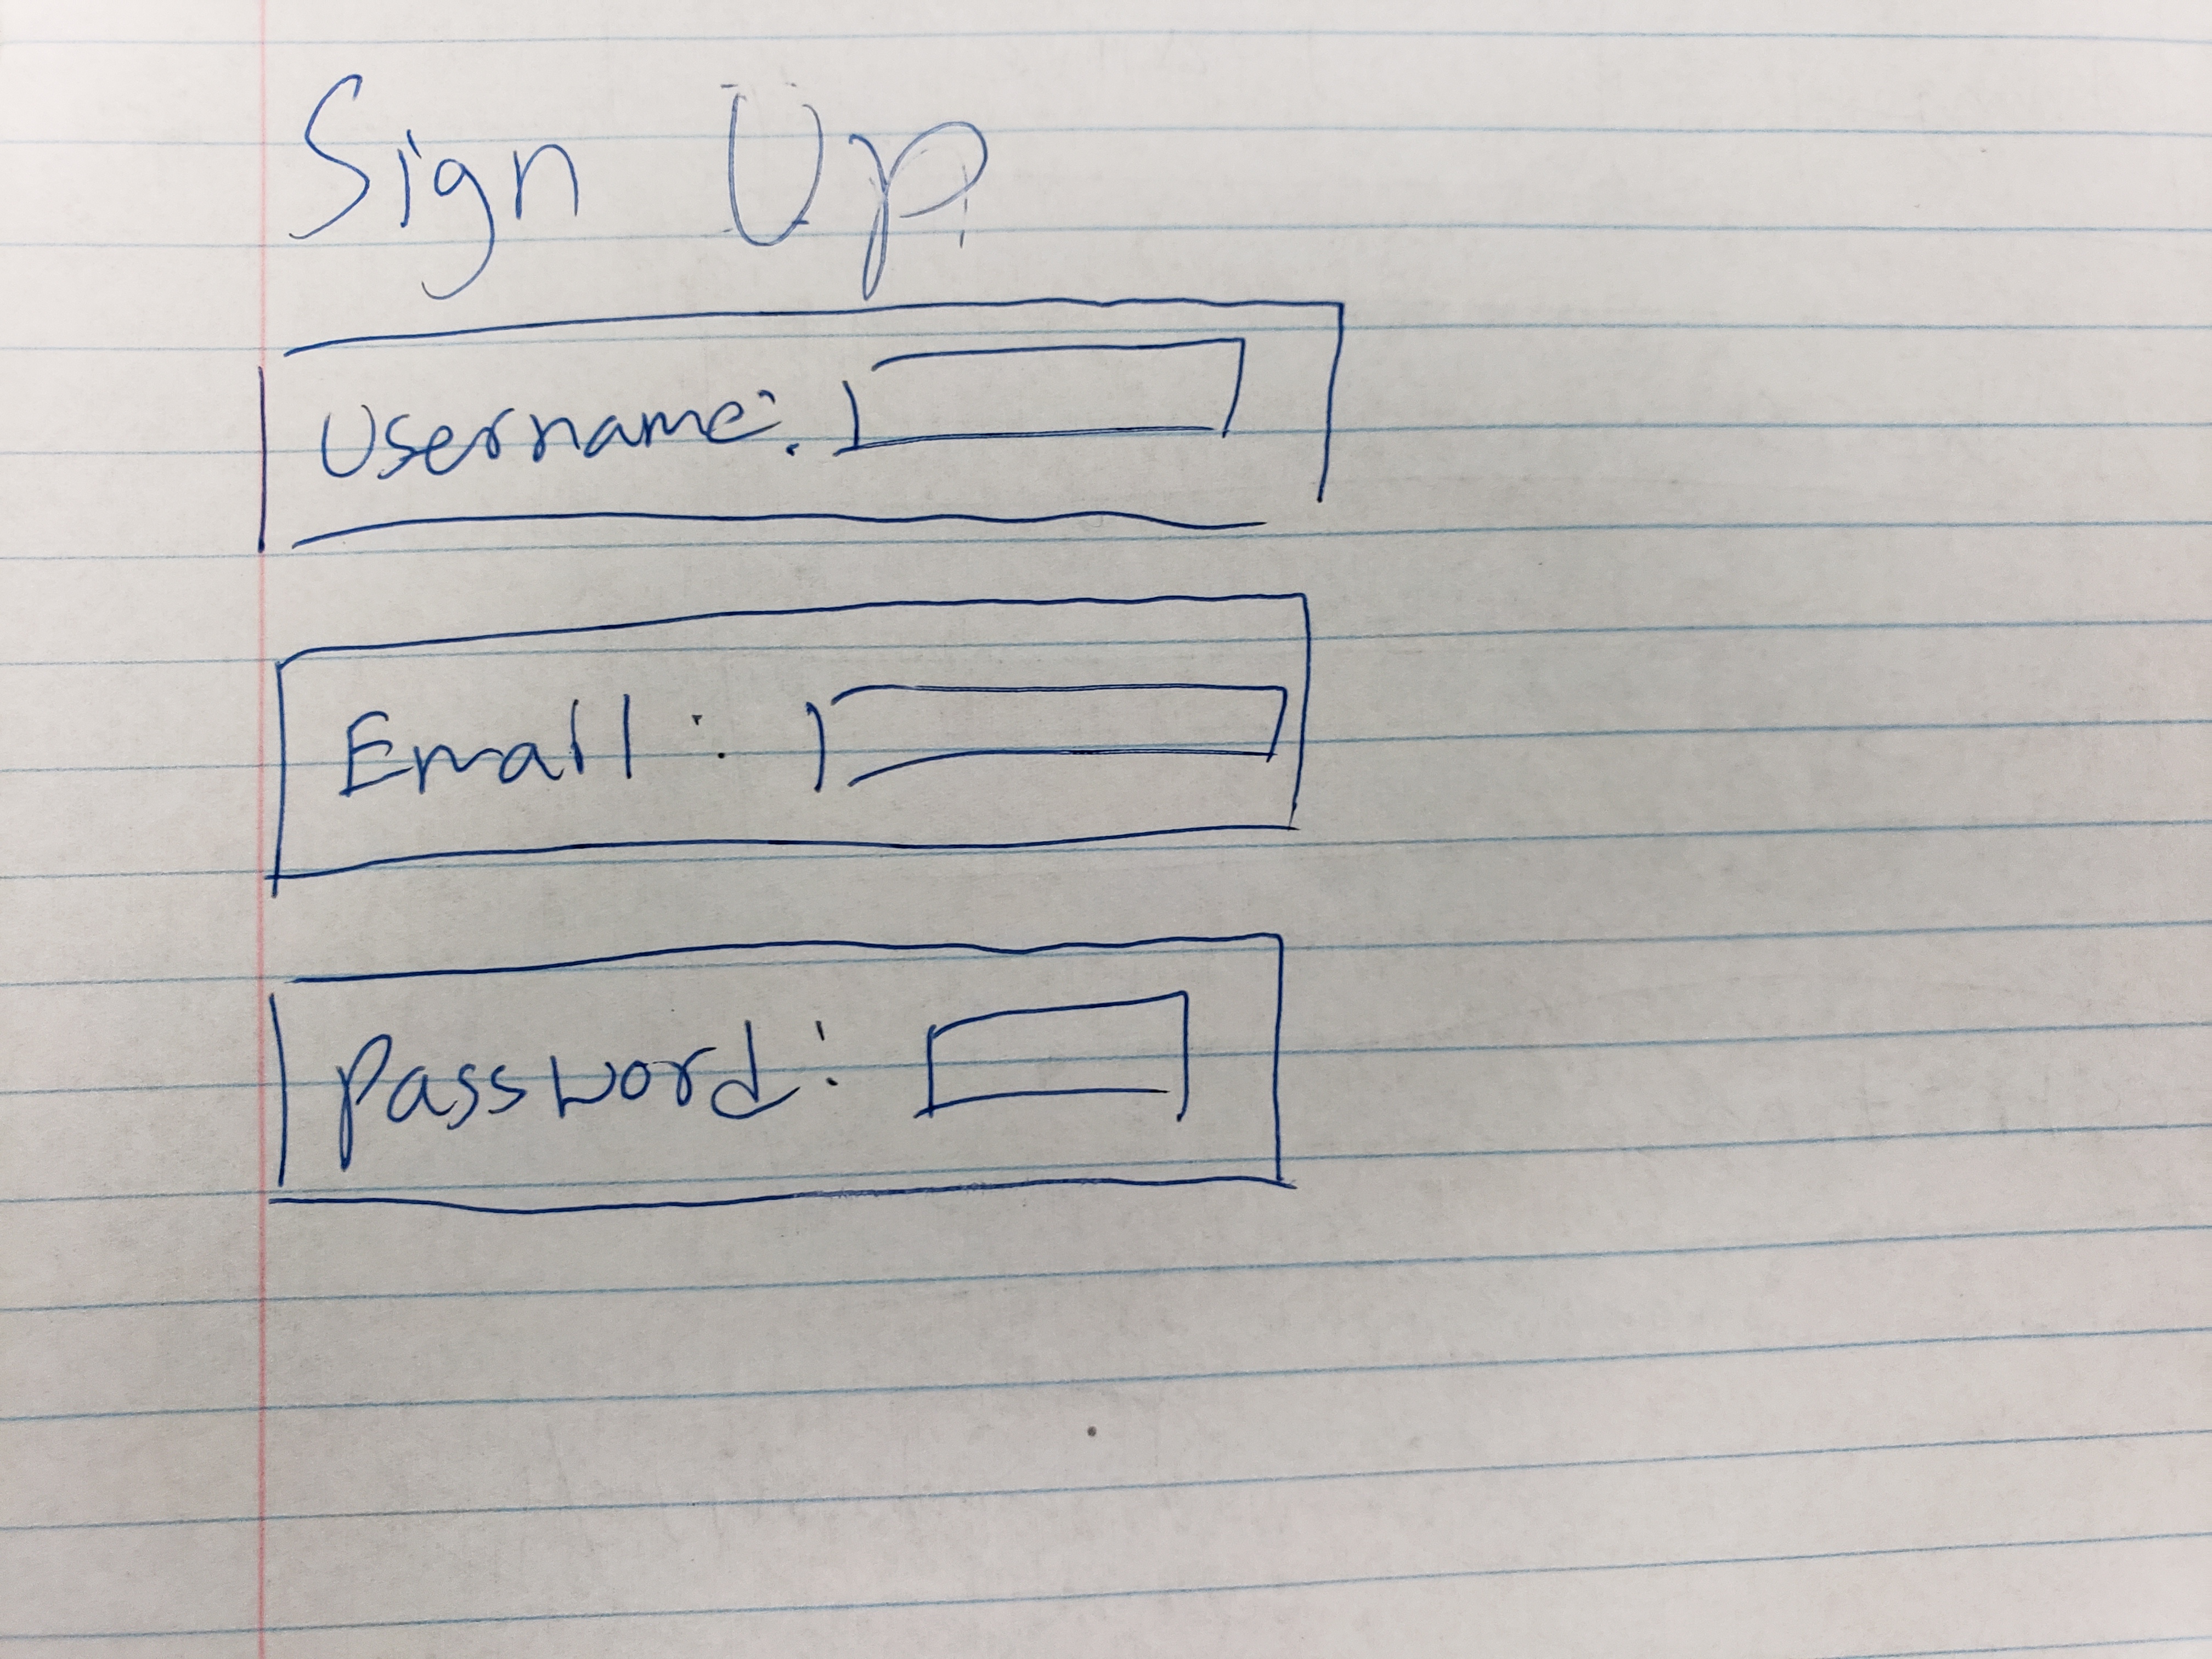 Sign Up
Username:
Email:
Password: